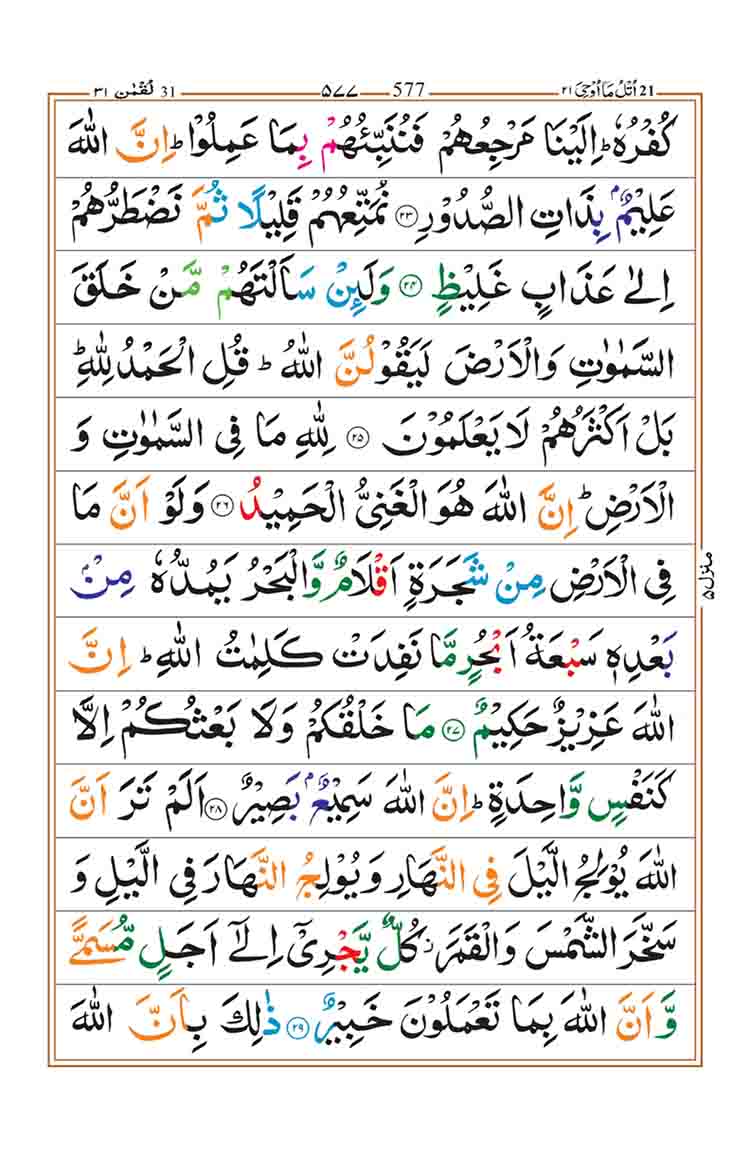 21 اُتْلُ مَاۤ اُوْحِیَ ۲۱ 577 ۵۷۷ 31 لُقْمٰن ۳۱
كُفْرُهٗ ؕ اِلَیْنَا مَرْجِعُهُمْ فَنُنَبِّئُهُمْ بِمَا عَمِلُوْا ؕ اِنَّ اللّٰهَ
عَلِیْمٌۢ بِذَاتِ الصُّدُوْرِ ۝۲۳ نُمَتِّعُهُمْ قَلِیْلًا ثُمَّ نَضْطَرُّهُمْ
اِلٰی عَذَابٍ غَلِیْظٍ ۝۲۴ وَلَىِٕنْ سَاَلْتَهُمْ مَّنْ خَلَقَ
السَّمٰوٰتِ وَالْاَرْضَ لَیَقُوْلُنَّ اللّٰهُ ؕ قُلِ الْحَمْدُ لِلّٰهِ ؕ
بَلْ اَكْثَرُهُمْ لَا یَعْلَمُوْنَ ۝۲۵ لِلّٰهِ مَا فِی السَّمٰوٰتِ وَ
الْاَرْضِ ؕ اِنَّ اللّٰهَ هُوَ الْغَنِیُّ الْحَمِیْدُ ۝۲۶ وَلَوْ اَنَّ مَا
فِی الْاَرْضِ مِنْ شَجَرَةٍ اَقْلَامٌ وَّالْبَحْرُ یَمُدُّهٗ مِنْۢ
بَعْدِهٖ سَبْعَةُ اَبْحُرٍ مَّا نَفِدَتْ كَلِمٰتُ اللّٰهِ ؕ اِنَّ
اللّٰهَ عَزِیْزٌ حَكِیْمٌ ۝۲۷ مَا خَلْقُكُمْ وَلَا بَعْثُكُمْ اِلَّا
كَنَفْسٍ وَّاحِدَةٍ ؕ اِنَّ اللّٰهَ سَمِیْعٌۢ بَصِیْرٌ ۝۲۸ اَلَمْ تَرَ اَنَّ
اللّٰهَ یُوْلِجُ الَّیْلَ فِی النَّهَارِ وَیُوْلِجُ النَّهَارَ فِی الَّیْلِ وَ
سَخَّرَ الشَّمْسَ وَالْقَمَرَ ؗ كُلٌّ یَّجْرِیْۤ اِلٰۤی اَجَلٍ مُّسَمًّی
وَّاَنَّ اللّٰهَ بِمَا تَعْمَلُوْنَ خَبِیْرٌ ۝۲۹ ذٰلِكَ بِاَنَّ اللّٰهَ
منزل ۵